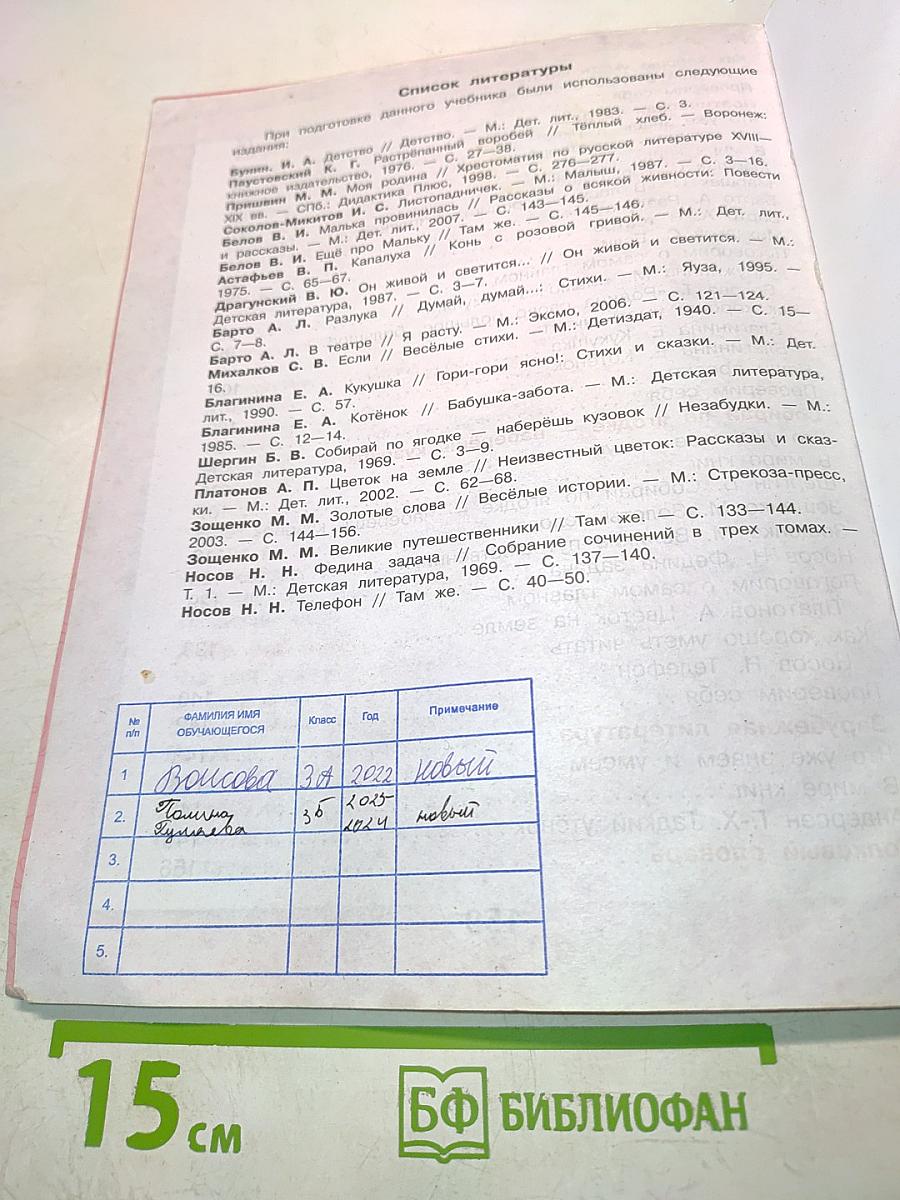 Список литературы
При подготовке данного учебника были использованы следующие
издания:
Бунин. И. А. Детство // Детство. — М.: Дет. лит., 1983. — С. 3.
Паустовский К. Г. Растрёпанный воробей // Тёплый хлеб. — Воронеж:
книжное издательство, 1976. — С. 27—38.
Пришвин М. М. Моя родина // Хрестоматия по русской литературе XVIII—
XIX вв. — СПб.: Дидактика Плюс, 1998. — С. 276—277.
Соколов-Микитов И. С. Листопадничек. — М.: Малыш, 1987. — С. 3—16.
Белов В. И. Малька провинилась // Рассказы о всякой живности: Повести
и рассказы. — М.: Дет. лит., 2007. — С. 143—145.
Белов В. И. Ещё про Мальку // Там же. — С. 145—146.
Астафьев В. П. Капалуха // Конь с розовой гривой. — М.: Дет. лит.,
1975. — С. 65—67.
Драгунский В. Ю. Он живой и светится... // Он живой и светится. — М.:
Детская литература, 1987. — С. 3—7.
Барто А. Л. Разлука // Думай, думай...: Стихи. — М.: Яуза, 1995. —
С. 7—8.
Барто А. Л. В театре // Я расту. — М.: Эксмо, 2006. — С. 121—124.
Михалков С. В. Если // Весёлые стихи. — М.: Детиздат, 1940. — С. 15—
16.
Благинина Е. А. Кукушка // Гори-гори ясно!: Стихи и сказки. — М.: Дет.
лит., 1990. — С. 57.
Благинина Е. А. Котёнок // Бабушка-забота. — М.: Детская литература,
1985. — С. 12—14.
Шергин Б. В. Собирай по ягодке — наберёшь кузовок // Незабудки. — М.:
Детская литература, 1969. — С. 3—9.
Платонов А. П. Цветок на земле // Неизвестный цветок: Рассказы и сказ-
ки. — М.: Дет. лит., 2002. — С. 62—68.
Зощенко М. М. Золотые слова // Весёлые истории. — М.: Стрекоза-пресс,
2003. — С. 144—156.
Зощенко М. М. Великие путешественники // Там же. — С. 133—144.
Носов Н. Н. Федина задача // Собрание сочинений в трех томах. —
Т. 1. — М.: Детская литература, 1969. — С. 137—140.
Носов Н. Н. Телефон // Там же. — С. 40—50.
№ п/п ФАМИЛИЯ ИМЯ ОБУЧАЮЩЕГОСЯ Класс Год Примечание
1 3А 2022 новый
2. Полина 3Б 2023-2024 новый
3.
4.
5.
15 см БФ БИБЛИОФАН